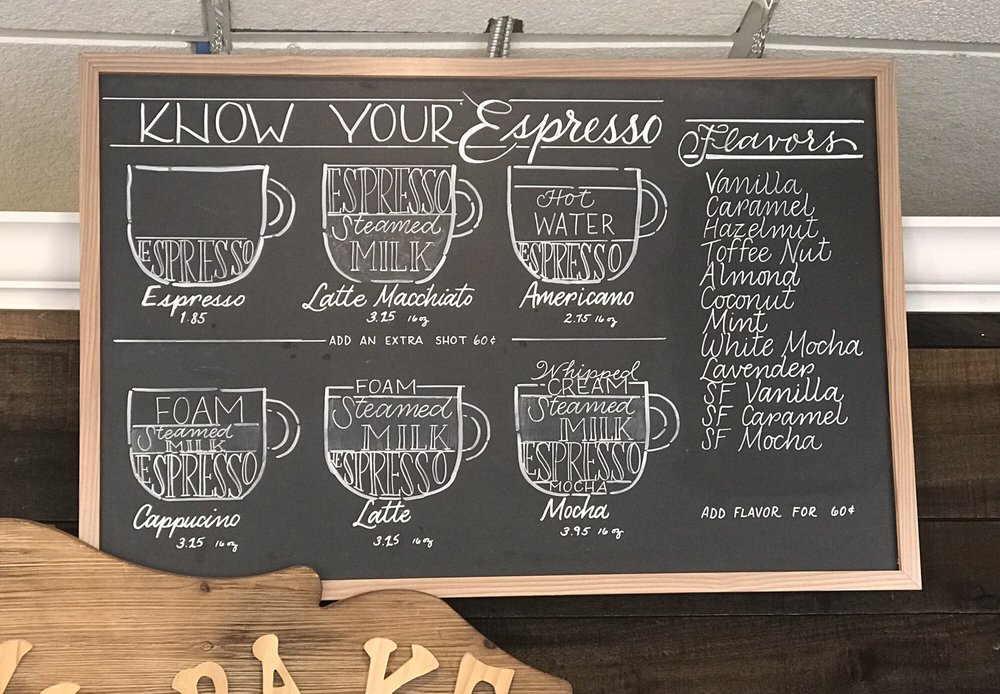 KNOW YOUR Espresso
ESPRESSO
Espresso
1.85
ESPRESSO
Steamed
MILK
Latte Macchiato
3.25 16oz
Hot
WATER
ESPRESSO
Americano
2.75 16oz
ADD AN EXTRA SHOT 60¢
FOAM
Steamed
MILK
ESPRESSO
Cappucino
3.25 16oz
FOAM
Steamed
MILK
ESPRESSO
Latte
3.25 16oz
Whipped
CREAM
Steamed
MILK
ESPRESSO
MOCHA
Mocha
3.95 16oz
Flavors
Vanilla
Caramel
Hazelnut
Toffee Nut
Almond
Coconut
Mint
White Mocha
Lavender
SF Vanilla
SF Caramel
SF Mocha
ADD FLAVOR FOR 60¢